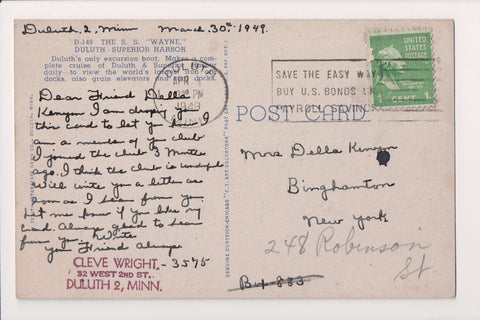 Duluth, 2, Minn March, 30th, 1949.
D-148 THE S. S. "WAYNE,"
DULUTH-SUPERIOR HARBOR
Duluth's only excursion boat. Makes a complete cruise of Duluth & Superior
daily—to view the world's largest iron ore
docks, also grain elevators and
Dear Friend Della
Kenyon I am droping you
this card to let you know I
am a member of your club
I joined the club 3 Months
ago. I think the club is wonderful
will write you a letter as
soon as I hear from you.
Let me know if you like my
card. Always glad to hear
from you. Write
your Friend Always
CLEVE WRIGHT - 3575
32 WEST 2ND ST.
DULUTH 2, MINN.
DULUTH
1949
MINN.
SAVE THE EASY WAY
BUY U.S. BONDS ON
PAYROLL SAVINGS
UNITED
STATES
POSTAGE
1 CENT 1
POST CARD
Mrs Della Kenyon
Binghamton
New York
248 Robinson
St.
Box 883
GENUINE CURTEICH-CHICAGO "C.T. ART-COLORTONE" POST CARD (REG. U.S. PAT. OFF.)